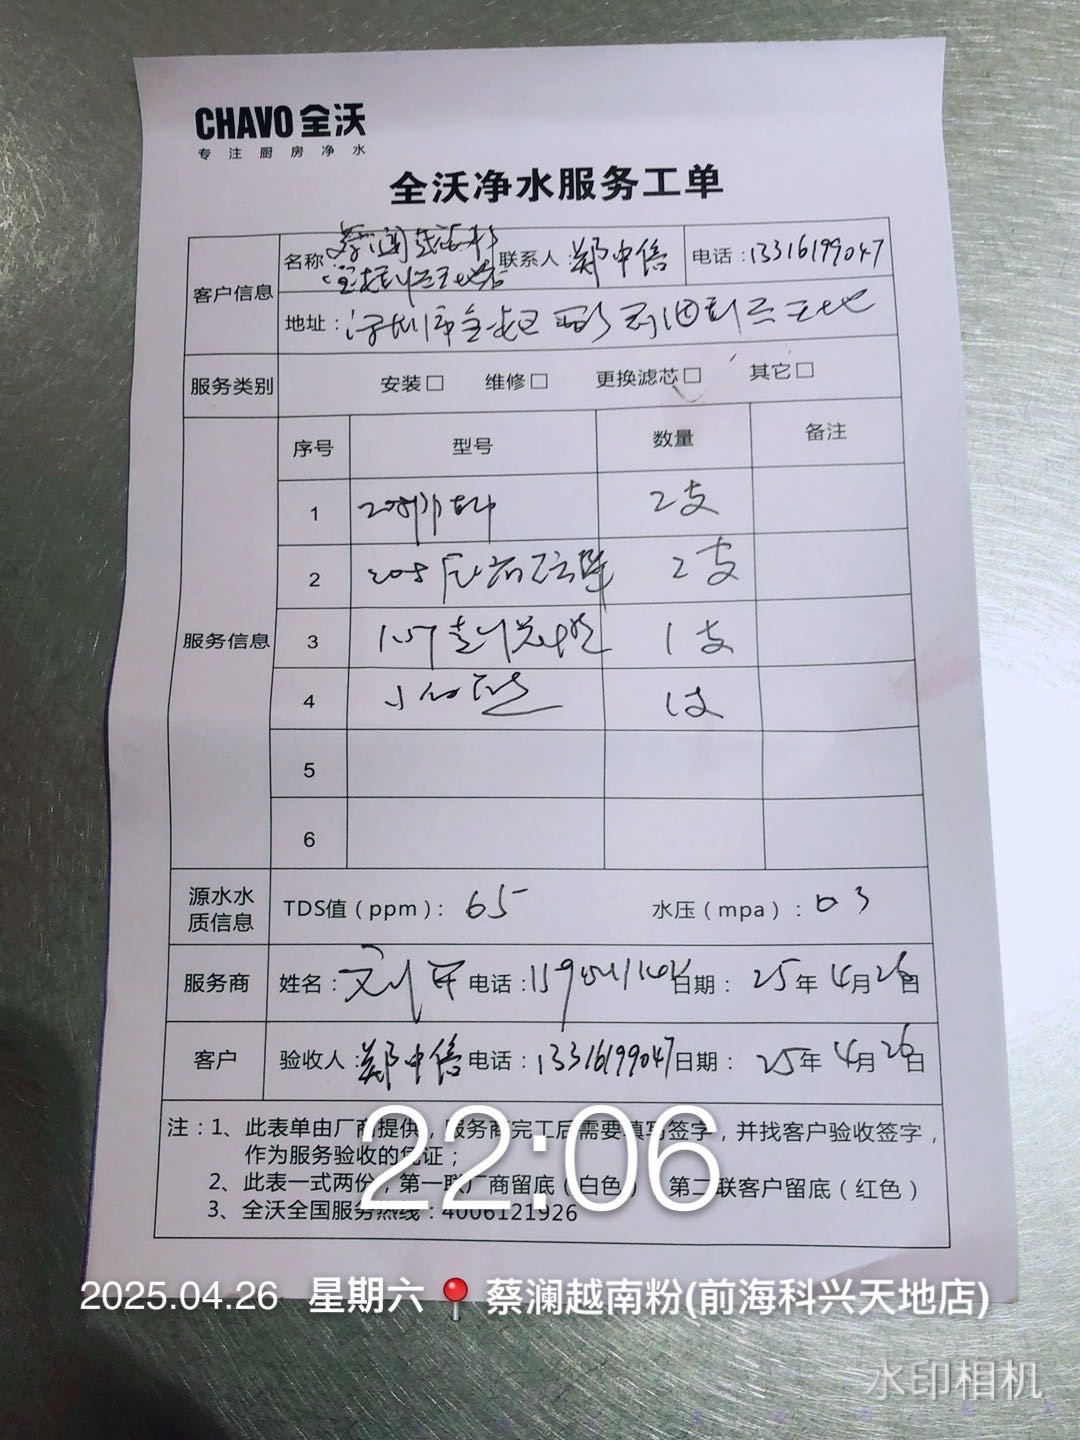 CHAVO 全沃
专注厨房净水
全沃净水服务工单
客户信息 名称: 联系人: 郑中信 电话:13316199047
地址: 深圳市
服务类别 安装□ 维修□ 更换滤芯□ 其它□
服务信息 序号 型号 数量 备注
1 2支
2 2支
3 1支
4 1支
5
6
源水水质信息 TDS值(ppm): 65 水压(mpa): 0.3
服务商 姓名: 电话: 日期: 25年4月26日
客户 验收人: 郑中信 电话:13316199047 日期: 25年4月26日
注:1、此表单由厂商提供,服务商完工后需要填写签字,并找客户验收签字,
作为服务验收的凭证;
2、此表一式两份,第一联厂商留底(白色) 第二联客户留底(红色)
3、全沃全国服务热线:4006121926
22:06
2025.04.26 星期六 蔡澜越南粉(前海科兴天地店)
水印相机